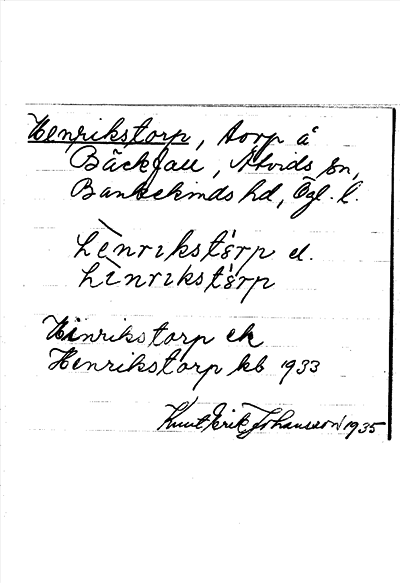 Henrikstorp, torp å
Bäckfall, Åtvids sn,
Bankekinds hd, Ögl. l.
hènrikstǿrp el.
hìnrikstǿrp
Hinrikstorp ek
Henrikstorp kb 1933
Knut Erik Johansson 1935